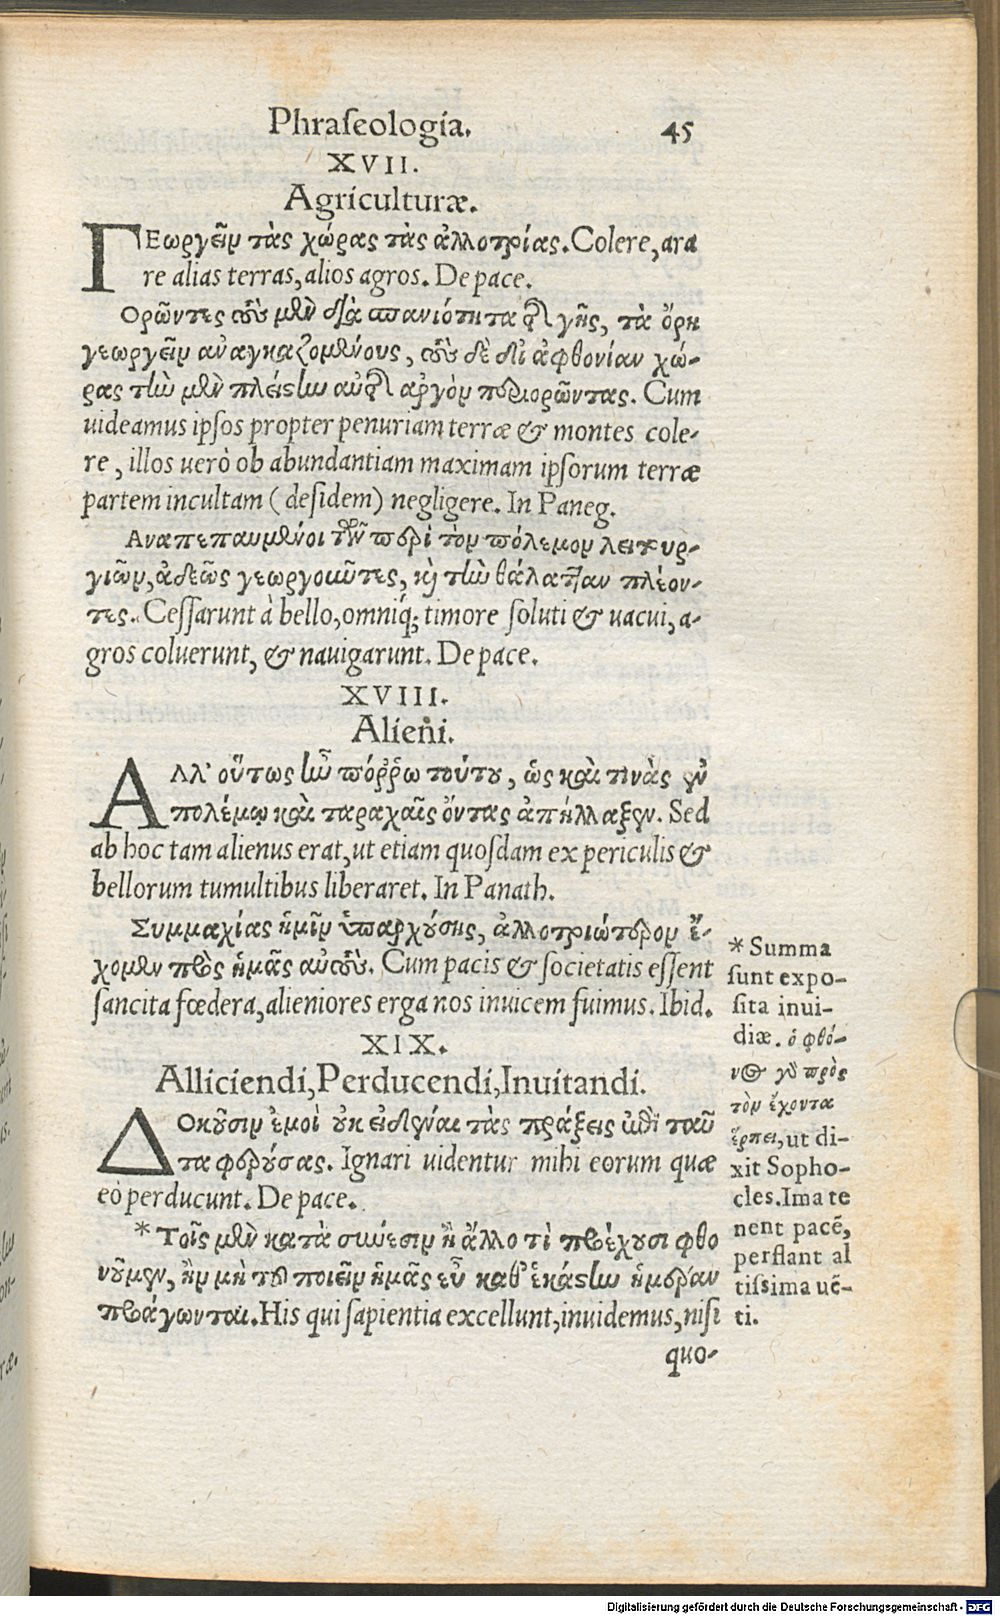 Phraſeologia. 45
XVII.
Agriculturæ.
ΓΕωργεῖν τὰς χώρας τὰς ἀλλοτρίας. Colere, ara
re alias terras, alios agros. De pace.
Ορῶντες τοὺς μὲν διὰ σπανιότητα τῆς γῆς, τὰ ὄρη
γεωργεῖν ἀναγκαζομένους, τοὺς δὲ δι' ἀφθονίαν χώ-
ρας τὴν μὲν πλείστην αὐτῆς ἀργὸν περιορῶντας. Cum
uideamus ipſos propter penuriam terræ & montes cole-
re, illos uerò ob abundantiam maximam ipſorum terræ
partem incultam (deſidem) negligere. In Paneg.
Αναπεπαυμένοι τῶν περὶ τὸν πόλεμον λειτουρ-
γιῶν, ἀδεῶς γεωργοῦντες, καὶ τὴν θάλατταν πλέον-
τες. Ceſſarunt à bello, omniq́; timore ſoluti & uacui, a-
gros coluerunt, & nauigarunt. De pace.
XVIII.
Alieni.
ΑΛΛ' οὕτως ἦν πόῤῥω τούτου, ὡς καὶ τινὰς ἐν
πολέμῳ καὶ ταραχαῖς ὄντας ἀπήλλαξεν. Sed
ab hoc tam alienus erat, ut etiam quoſdam ex periculis &
bellorum tumultibus liberaret. In Panath.
Συμμαχίας ἡμῖν ὑπαρχούσης, ἀλλοτριώτερον ἔ-
χομεν πρὸς ἡμᾶς αὐτούς. Cum pacis & ſocietatis eſſent
ſancita fœdera, alieniores erga nos inuicem fuimus. Ibid.
XIX.
Alliciendi, Perducendi, Inuitandi.
ΔΟκοῦσιν ἐμοὶ οὐκ εἰδέναι τὰς πράξεις ἐπὶ ταῦ
τα φερούσας. Ignari uidentur mihi eorum quæ
eò perducunt. De pace.
* Τοῖς μὲν κατὰ σύνεσιν ἢ ἄλλο τὶ προέχουσι φθο
νοῦμεν, ἢν μὴ τῷ ποιεῖν ἡμᾶς εὖ καθ' ἑκάστην ἡμέραν
προάγωνται. His qui ſapientia excellunt, inuidemus, niſi
quo-
* Summa
ſunt expo-
ſita inui-
diæ. ὁ φθό-
νος γὰρ πρὸς
τὸν ἔχοντα
ἕρπει, ut di-
xit Sopho-
cles. Ima te
nent pacē,
perflant al
tiſsima uē-
ti.
Digitalisierung gefördert durch die Deutsche Forschungsgemeinschaft - DFG